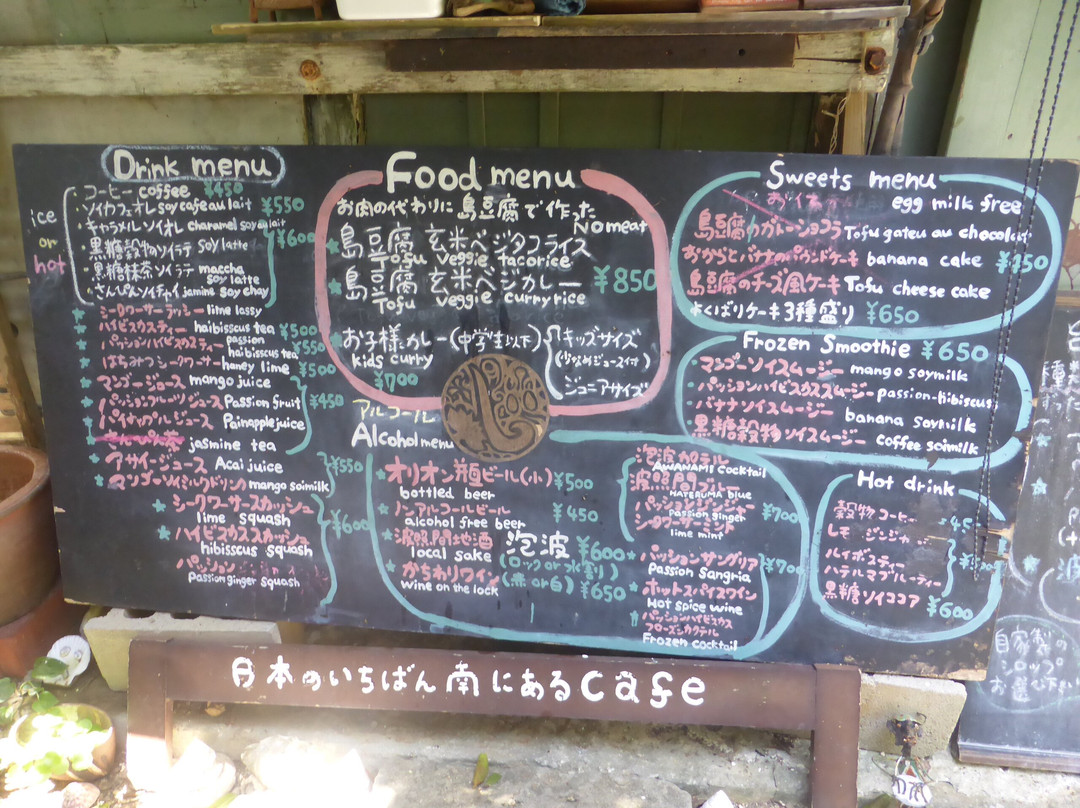 Drink menu
ice
or
hot
・コーヒー coffee ¥450
・ソイカフェオレ soy cafe au lait ¥550
・キャラメルソイオレ charamel soy au lait
・黒糖穀物ソイラテ soy latte
・黒糖抹茶ソイラテ maccha soy latte
・さんぴんソイチャイ jamine soy chay
¥600
シークワーサーラッシー lime lassy
ハイビスカスティー haibiscus tea ¥500
パッションハイビスカスティー passion haibiscus tea ¥550
はちみつシークワーサー haney lime ¥500
マンゴージュース mango juice
パッションフルーツジュース Passion fruit ¥450
パイナップルジュース Painapple juice
jasmine tea
アサイージュース Acai juice ¥550
マンゴーソイミルクドリンク mango soimilk
シークワーサースカッシュ
lime squash
ハイビスカススカッシュ ¥600
hibiscus squash
パッション
Passion ginger squash
Food menu
お肉の代わりに島豆腐で作った
No meat
島豆腐 玄米ベジタコライス
Tofu veggie tacorice
島豆腐 玄米ベジカレー ¥850
Tofu veggie curry rice
お子様カレー(中学生以下)
kids curry
¥700
キッズサイズ
(少なめジュース付)
ジュニアサイズ
アルコール
Alcohol menu
オリオン瓶ビール(小) ¥500
bottled beer
ノンアルコールビール ¥450
alcohol free beer
波照間地酒 泡波 ¥600
local sake (ロック or 水割り)
かちわりワイン (赤 or 白) ¥650
wine on the lock
泡波カクテル
AWANAMI cocktail
波照間ブルー
HATERUMA blue
パッションジンジャー
passion ginger ¥700
シークワーサーミント
lime mint
パッションサングリア ¥700
Passion Sangria
ホットスパイスワイン
Hot spice wine
パッションハイビスカス
フローズンカクテル
Frozen cocktail
Sweets menu
egg milk free
島豆腐のガトーショコラ Tofu gateau au chocolat
おからとバナナのパウンドケーキ banana cake
島豆腐のチーズ風ケーキ Tofu cheese cake
よくばりケーキ3種盛り ¥650
Frozen Smoothie ¥650
マンゴーソイスムージー mango soymilk
・パッションハイビスカスムージー passion-hibiscus
・バナナソイスムージー banana soymilk
黒糖穀物ソイスムージー coffee soimilk
Hot drink
穀物コーヒー
ルイボスティー
ハテルマブルーティー
黒糖ソイココア ¥600
日本のいちばん南にあるcafe
自家製の
シロップ